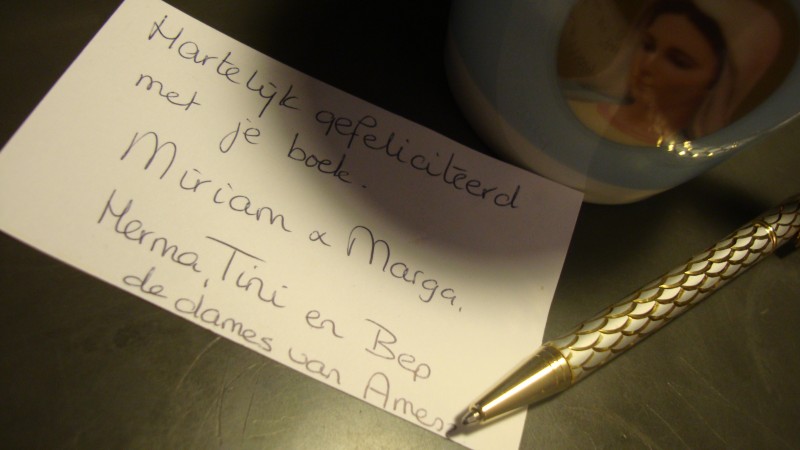 Hartelijk gefeliciteerd
met je boek.
Miriam & Marga.
Herma, Tini en Bep
de dames van